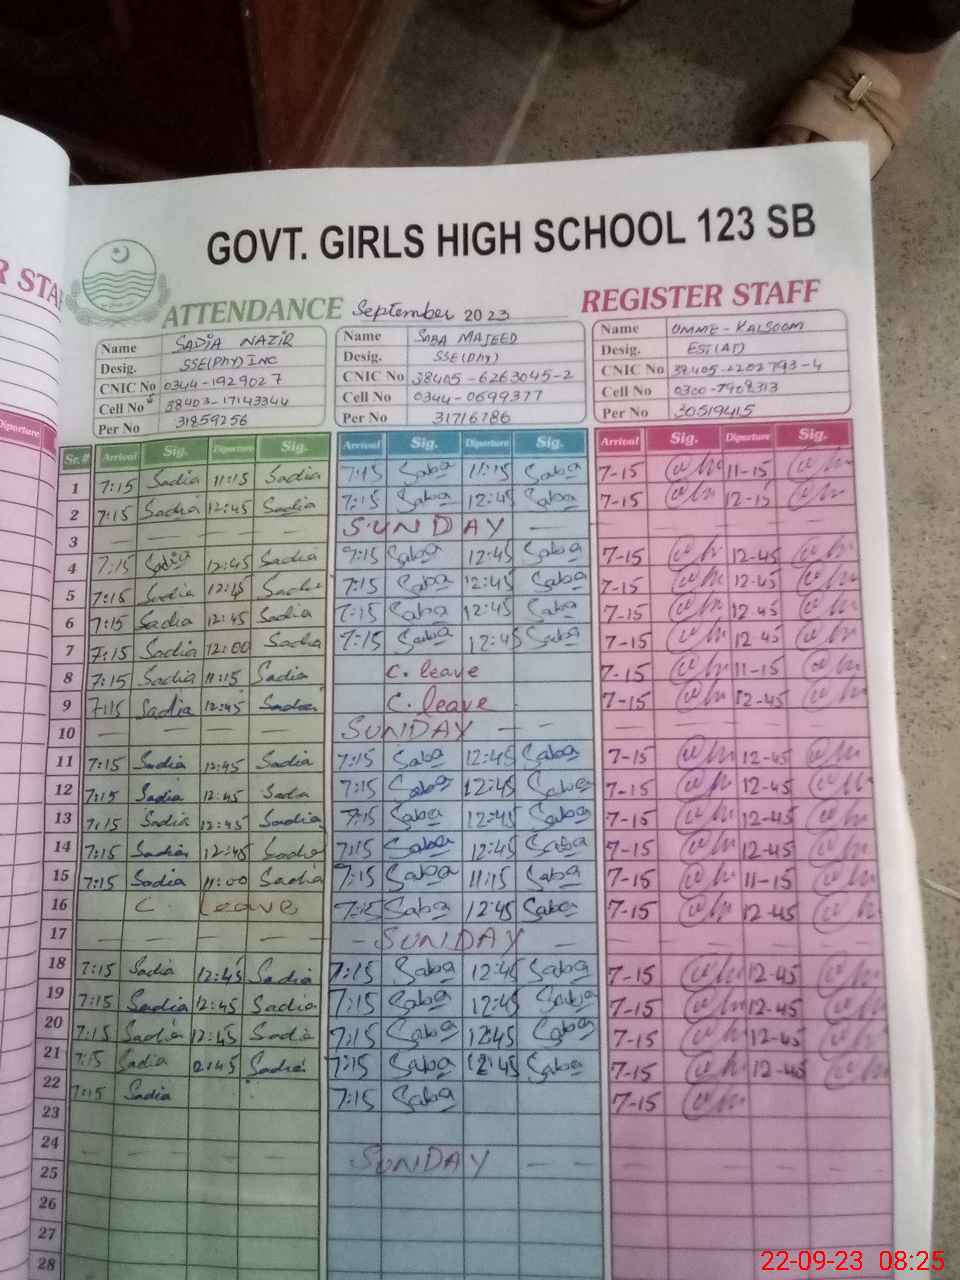 GOVT. GIRLS HIGH SCHOOL 123 SB
R STA
ATTENDANCE September 2023 REGISTER STAFF
Name SADIA NAZIR Name SABA MAJEED Name UMME-KALSOOM
Desig. SSE(PHY) INC Desig. SSE(Phy) Desig. EST(AT)
CNIC No 0344-1929027 CNIC No 38405-6263045-2 CNIC No
Cell No 38403-17143344 Cell No 0344-0699377 Cell No
Per No 31859256 Per No 31716786 Per No 30519415
Diparture Sr.# Arrival Sig. Diparture Sig. Arrival Sig. Diparture Sig. Arrival Sig. Diparture Sig.
1 7:15 Sadia 11:15 Sadia 7:15 Saba 11:15 Saba 7-15 11-15
2 7:15 Sadia 12:45 Sadia 7:15 Saba 12:45 Saba 7-15 12-15
3 — — — — SUNDAY — — — — —
4 7:15 Sadia 12:45 Sadia 7:15 Saba 12:45 Saba 7-15 12-45
5 7:15 Sadia 12:15 Sadia 7:15 Saba 12:45 Saba 7-15 12-45
6 7:15 Sadia 12:45 Sadia 7:15 Saba 12:45 Saba 7-15 12-45
7 7:15 Sadia 12:00 Sadia 7:15 Saba 12:45 Saba 7-15 12-45
8 7:15 Sadia 11:15 Sadia C. leave 7-15 11-15
9 7:15 Sadia 12:45 Sadia C. leave 7-15 12-45
10 — — — — SUNDAY — — — — —
11 7:15 Sadia 12:45 Sadia 7:15 Saba 12:45 Saba 7-15 12-45
12 7:15 Sadia 12:45 Sadia 7:15 Saba 12:45 Saba 7-15 12-45
13 7:15 Sadia 12:45 Sadia 7:15 Saba 12:45 Saba 7-15 12-45
14 7:15 Sadia 12:45 Sadia 7:15 Saba 12:45 Saba 7-15 12-45
15 7:15 Sadia 11:00 Sadia 7:15 Saba 11:15 Saba 7-15 11-15
16 C. Leave 7:15 Saba 12:45 Saba 7-15 12-45
17 — — — — — SUNDAY — — — — —
18 7:15 Sadia 12:45 Sadia 7:15 Saba 12:45 Saba 7-15 12-45
19 7:15 Sadia 12:45 Sadia 7:15 Saba 12:45 Saba 7-15 12-45
20 7:15 Sadia 12:45 Sadia 7:15 Saba 12:45 Saba 7-15 12-45
21 7:15 Sadia 12:45 Sadia 7:15 Saba 12:45 Saba 7-15 12-45
22 7:15 Sadia 7:15 Saba 7-15
23
24 — — — — SUNDAY — — — — —
25
26
27
28
22-09-23 08:25